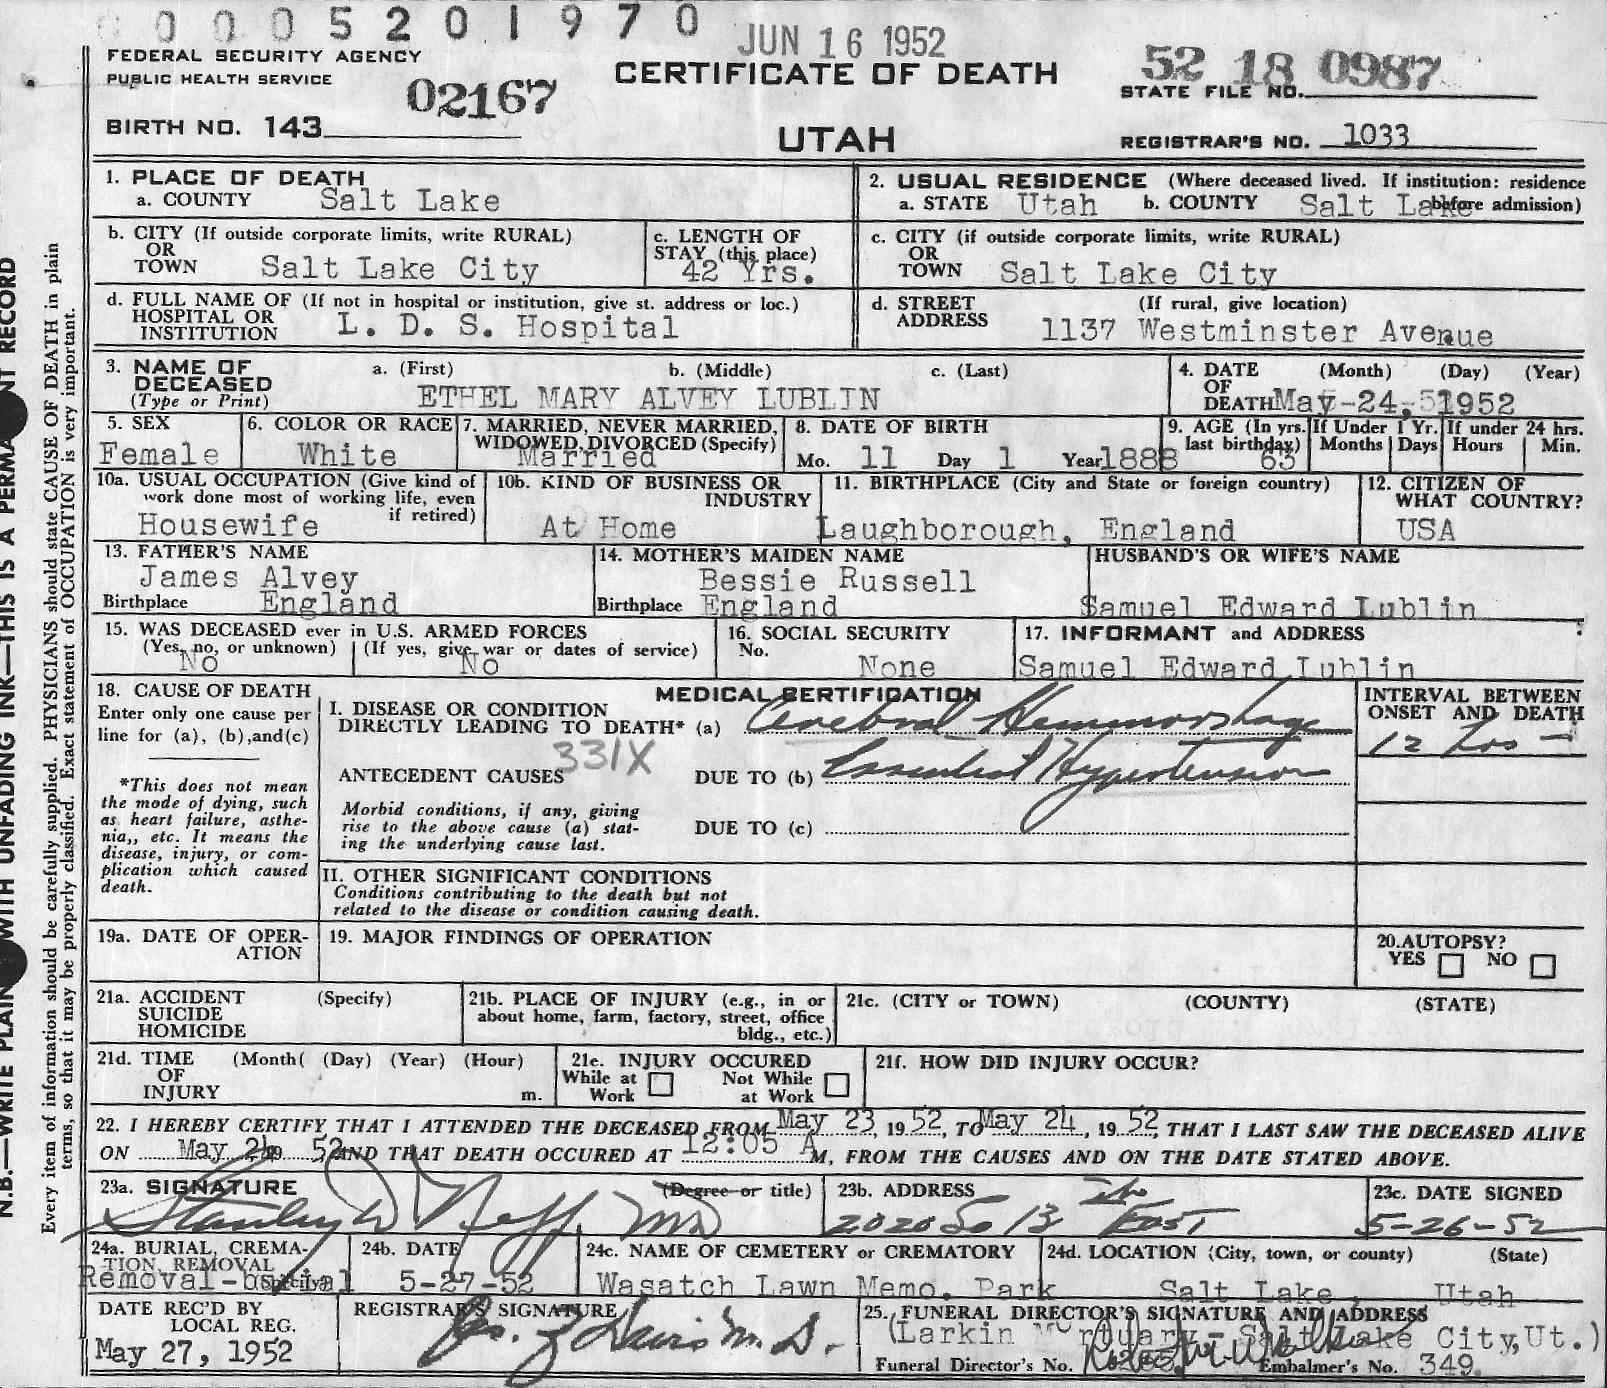 0 0 0 5 2 0 1 9 7 0
JUN 16 1952
FEDERAL SECURITY AGENCY
PUBLIC HEALTH SERVICE
02167
CERTIFICATE OF DEATH
52 18 0987
STATE FILE NO.
BIRTH NO. 143
UTAH
REGISTRAR'S NO. 1033
1. PLACE OF DEATH
a. COUNTY Salt Lake
2. USUAL RESIDENCE (Where deceased lived. If institution: residence
a. STATE Utah b. COUNTY Salt Lake before admission)
b. CITY (If outside corporate limits, write RURAL)
OR
TOWN Salt Lake City
c. LENGTH OF
STAY (this place)
42 Yrs.
c. CITY (if outside corporate limits, write RURAL)
OR
TOWN Salt Lake City
d. FULL NAME OF (If not in hospital or institution, give st. address or loc.)
HOSPITAL OR
INSTITUTION L. D. S. Hospital
d. STREET (If rural, give location)
ADDRESS 1137 Westminster Avenue
3. NAME OF a. (First) b. (Middle) c. (Last)
DECEASED
(Type or Print) ETHEL MARY ALVEY LUBLIN
4. DATE (Month) (Day) (Year)
OF
DEATH May-24-51952
5. SEX
Female
6. COLOR OR RACE
White
7. MARRIED, NEVER MARRIED,
WIDOWED, DIVORCED (Specify)
Married
8. DATE OF BIRTH
Mo. 11 Day 1 Year 1888
9. AGE (In yrs.
last birthday)
63
If Under 1 Yr.
Months Days
If under 24 hrs.
Hours Min.
10a. USUAL OCCUPATION (Give kind of
work done most of working life, even
if retired)
Housewife
10b. KIND OF BUSINESS OR
INDUSTRY
At Home
11. BIRTHPLACE (City and State or foreign country)
Laughborough, England
12. CITIZEN OF
WHAT COUNTRY?
USA
13. FATHER'S NAME
James Alvey
Birthplace England
14. MOTHER'S MAIDEN NAME
Bessie Russell
Birthplace England
HUSBAND'S OR WIFE'S NAME
Samuel Edward Lublin
15. WAS DECEASED ever in U.S. ARMED FORCES
(Yes, no, or unknown) (If yes, give war or dates of service)
No No
16. SOCIAL SECURITY
No.
None
17. INFORMANT and ADDRESS
Samuel Edward Lublin
18. CAUSE OF DEATH
Enter only one cause per
line for (a), (b),and(c)
*This does not mean
the mode of dying, such
as heart failure, asthe-
nia,, etc. It means the
disease, injury, or com-
plication which caused
death.
MEDICAL CERTIFICATION
I. DISEASE OR CONDITION
DIRECTLY LEADING TO DEATH* (a) Cerebral Hemmorrhage
331X
ANTECEDENT CAUSES DUE TO (b) Essential Hypertension
Morbid conditions, if any, giving
rise to the above cause (a) stat-
ing the underlying cause last.
DUE TO (c)
INTERVAL BETWEEN
ONSET AND DEATH
12 hrs -
II. OTHER SIGNIFICANT CONDITIONS
Conditions contributing to the death but not
related to the disease or condition causing death.
19a. DATE OF OPER-
ATION
19. MAJOR FINDINGS OF OPERATION
20. AUTOPSY?
YES NO
21a. ACCIDENT (Specify)
SUICIDE
HOMICIDE
21b. PLACE OF INJURY (e.g., in or
about home, farm, factory, street, office
bldg., etc.)
21c. (CITY or TOWN) (COUNTY) (STATE)
21d. TIME (Month( (Day) (Year) (Hour)
OF
INJURY m.
21e. INJURY OCCURED
While at Not While
Work at Work
21f. HOW DID INJURY OCCUR?
22. I HEREBY CERTIFY THAT I ATTENDED THE DECEASED FROM May 23, 19 52, TO May 24, 19 52, THAT I LAST SAW THE DECEASED ALIVE
ON May 24, 19 52 AND THAT DEATH OCCURED AT 12:05 A M, FROM THE CAUSES AND ON THE DATE STATED ABOVE.
23a. SIGNATURE (Degree or title)
Stanley D Neff, MD
23b. ADDRESS
2020 So 13 the East
23c. DATE SIGNED
5-26-52
24a. BURIAL, CREMA-
TION, REMOVAL
(Specify)
Removal-burial
24b. DATE
5-27-52
24c. NAME OF CEMETERY or CREMATORY
Wasatch Lawn Memo. Park
24d. LOCATION (City, town, or county) (State)
Salt Lake, Utah
DATE REC'D BY
LOCAL REG.
May 27, 1952
REGISTRAR'S SIGNATURE
Davis M.D.
25. FUNERAL DIRECTOR'S SIGNATURE AND ADDRESS
(Larkin Mortuary - Salt Lake City, Ut.)
Funeral Director's No. Embalmer's No. 349.
N.B.—WRITE PLAIN WITH UNFADING INK—THIS IS A PERMA NT RECORD
Every item of information should be carefully supplied. PHYSICIANS should state CAUSE OF DEATH in plain
terms, so that it may be properly classified. Exact statement of OCCUPATION is very important.